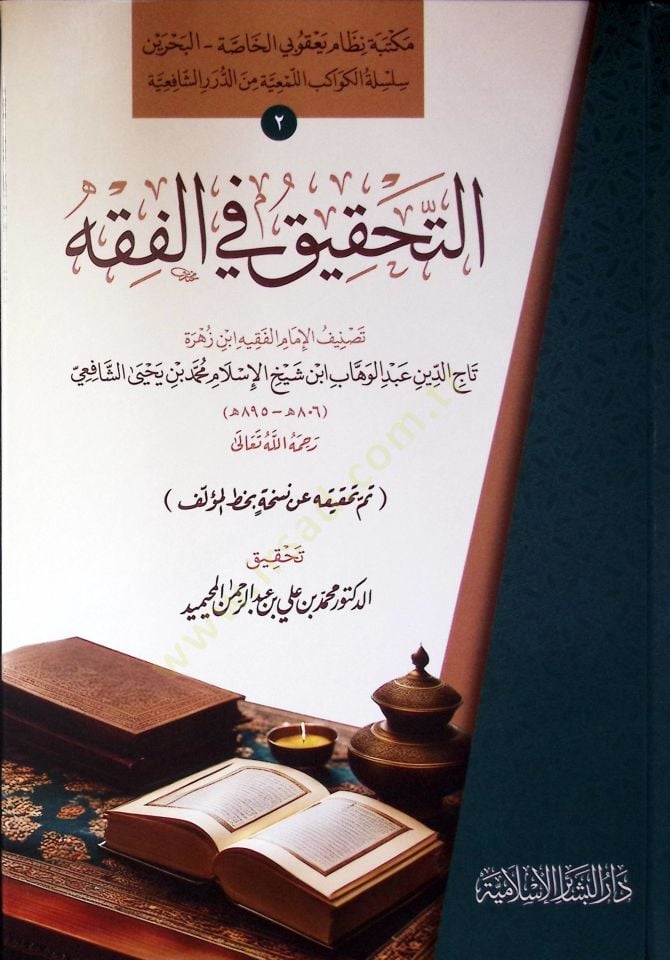 مَكتَبَة نِظَام يَعقُوبي الخَاصَّة - البَحْرَين
سِلسِلَة الكَوَاكِب اللّمَعِيَّة مِنَ الدُّرَرِ الشَّافِعِيَّة
٢
التَّحْقِيقُ فِي الفِقْهِ
تَصْنِيفُ الإِمَامِ الفَقِيهِ ابْنِ زُهْرَة
تَاجِ الدِّينِ عَبْدِ الوَهَّابِ ابْنِ شَيْخِ الإِسْلَامِ مُحَمَّدِ بْنِ يَحْيَىٰ الشَّافِعِيّ
(٨٠٦هـ - ٨٩٥هـ)
رَحِمَهُ اللهُ تَعَالَىٰ
( تمّ تحقيقه عن نسخةٍ بخط المؤلّف )
تَحْقِيق
الدكتور محمد بن علي بن عبد الرحمٰن المحيميد
دَارُ البَشَائِر الإِسْلَامِيَّة